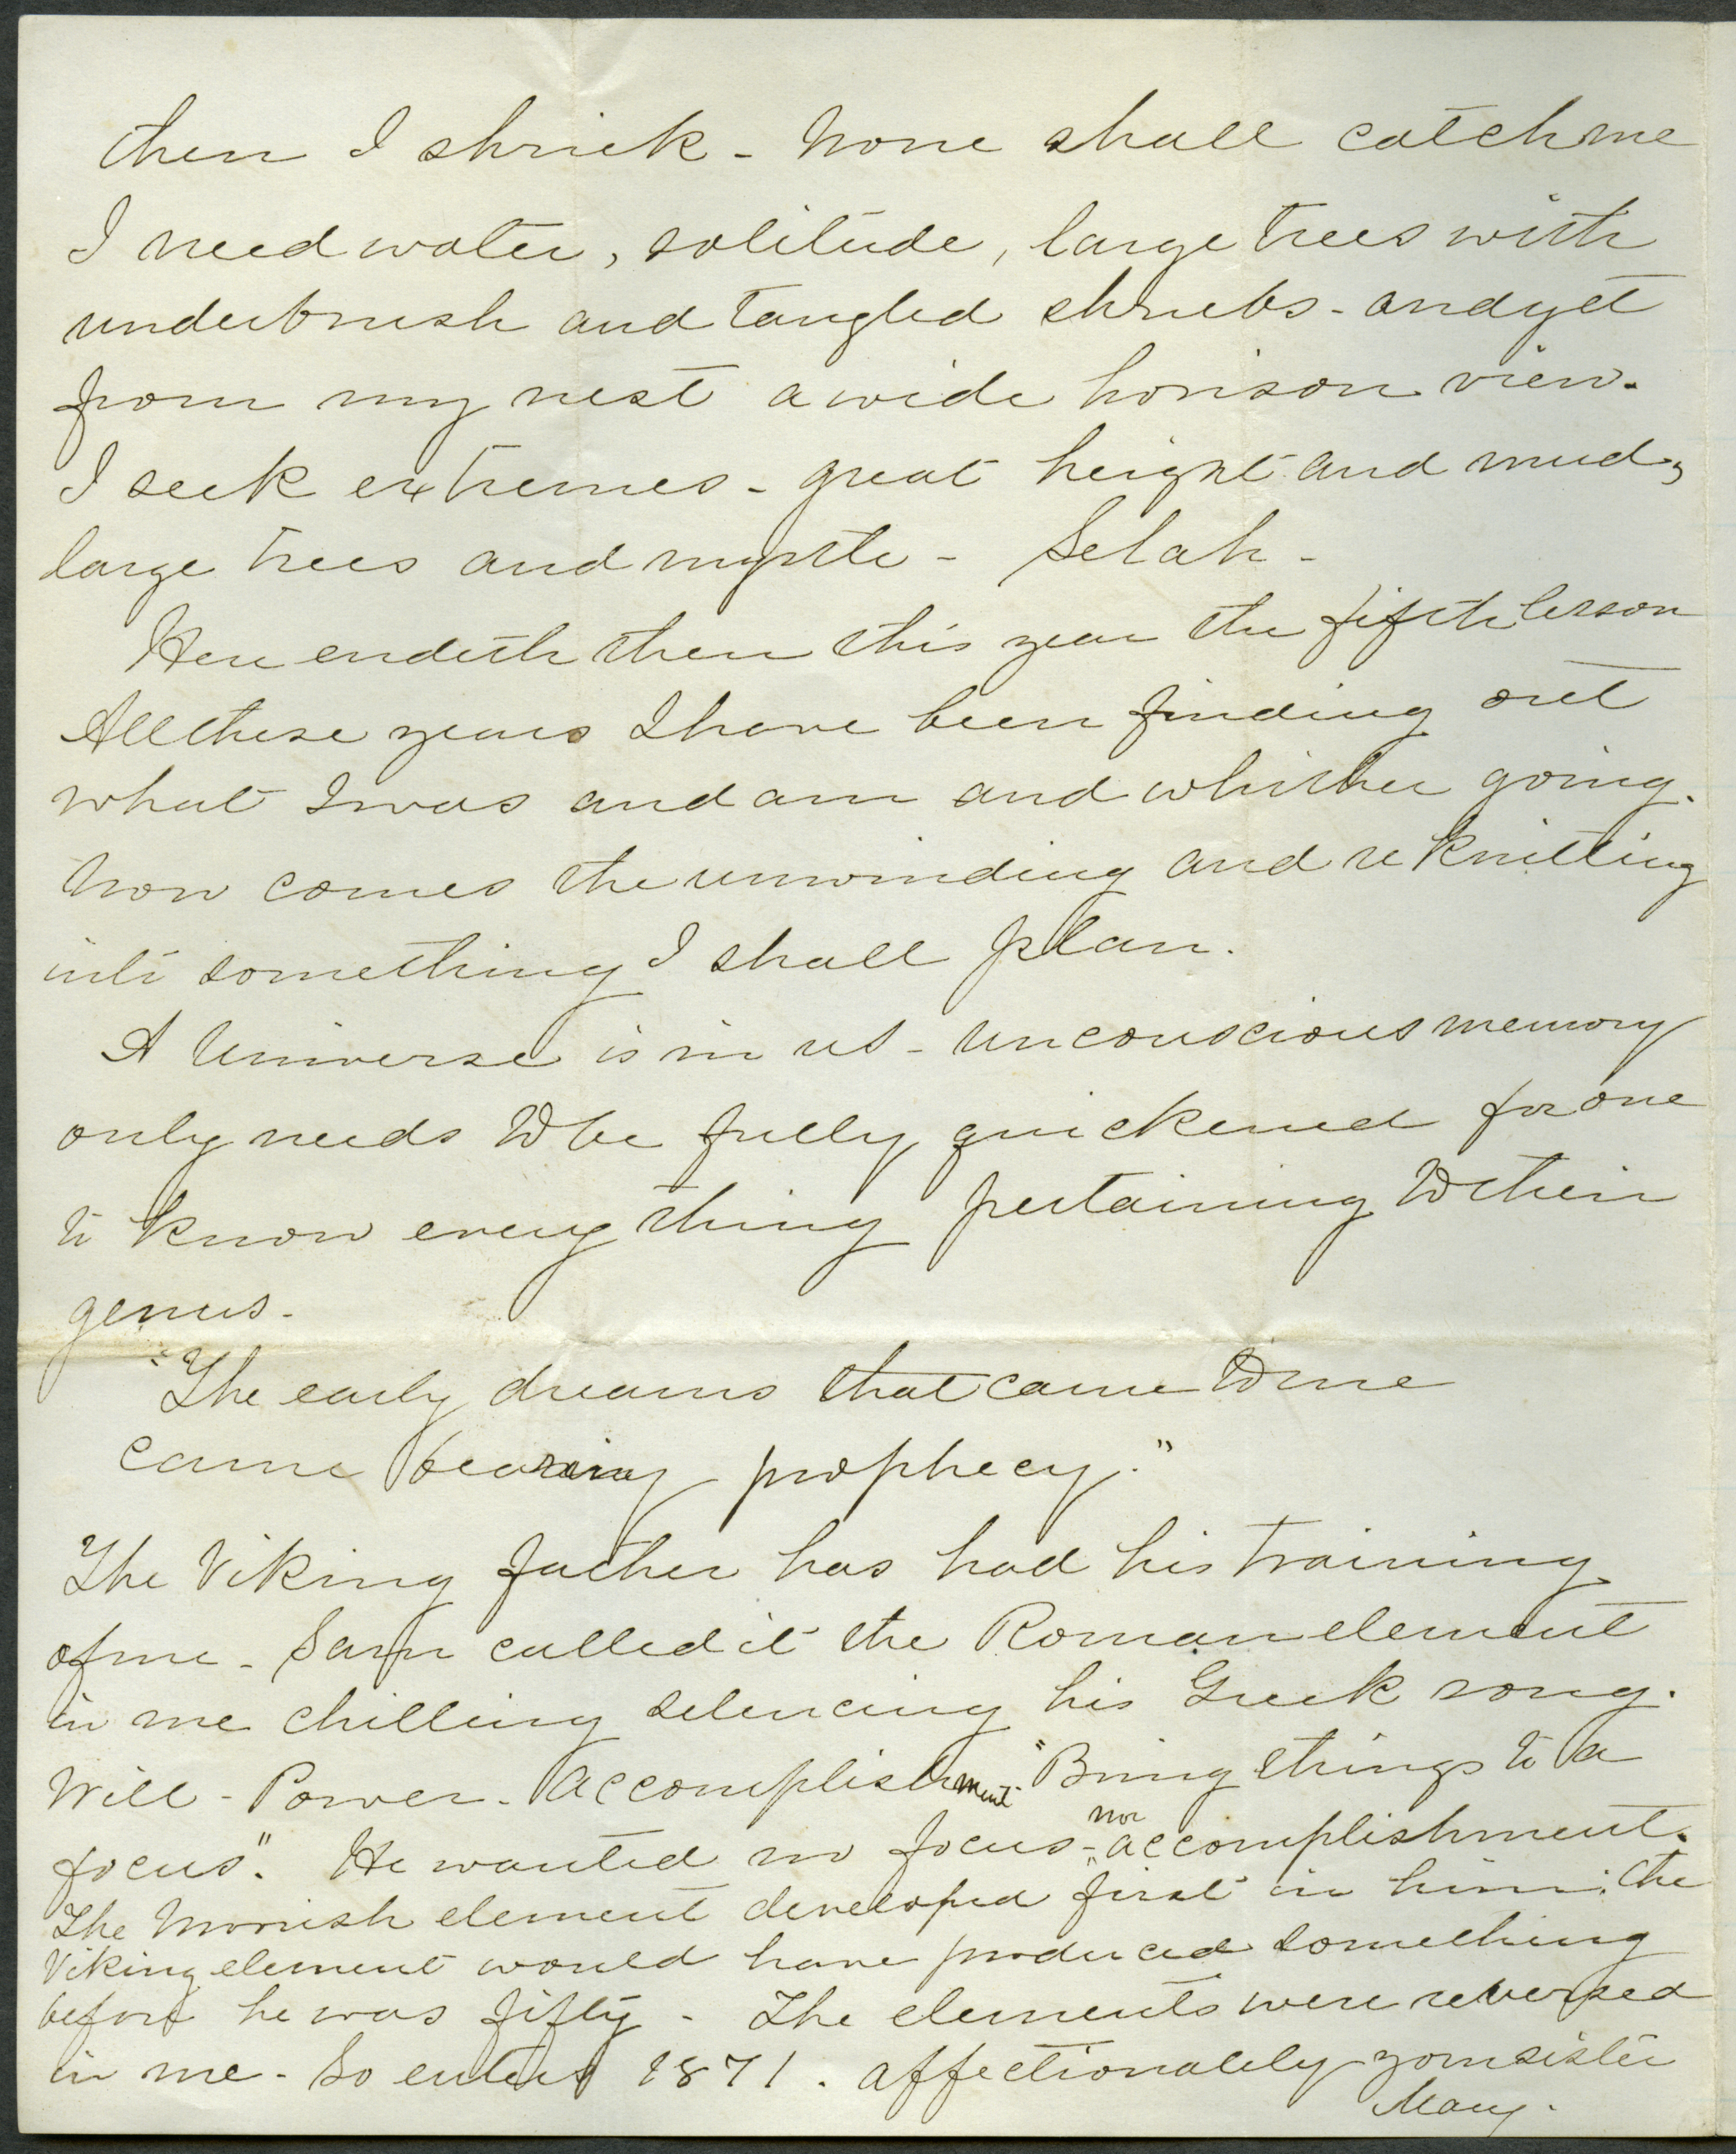 then I shriek - None shall catch me
I need water, solitude, large trees with
underbrush and tangled shrubs - and yet
from my nest a wide horison view.
I seek extremes - great height and mud,
large trees and myrtle - Selah -
Here endeth then this year the fifth lesson
All these years I have been finding out
what I was and am and whither going.
Now comes the unwinding and re knitting
into something I shall plan.
A Universe is in us - unconscious memory
only needs to be fully quickened for one
to know every thing pertaining to their
genus -
"The early dreams that came to me
came bearing prophecy."
The Viking father has had his training
of me - Sam called it the Roman element
in me chilling silencing his Greek song.
Will - Power - Accomplishment - "Bring things to a
focus". He wanted no focus - nor accomplishment.
The Moorish element developed "first" in him: the
Viking element would have produced something
before he was fifty - The elements were reversed
in me - So enters 1871. affectionately your sister
Mary.